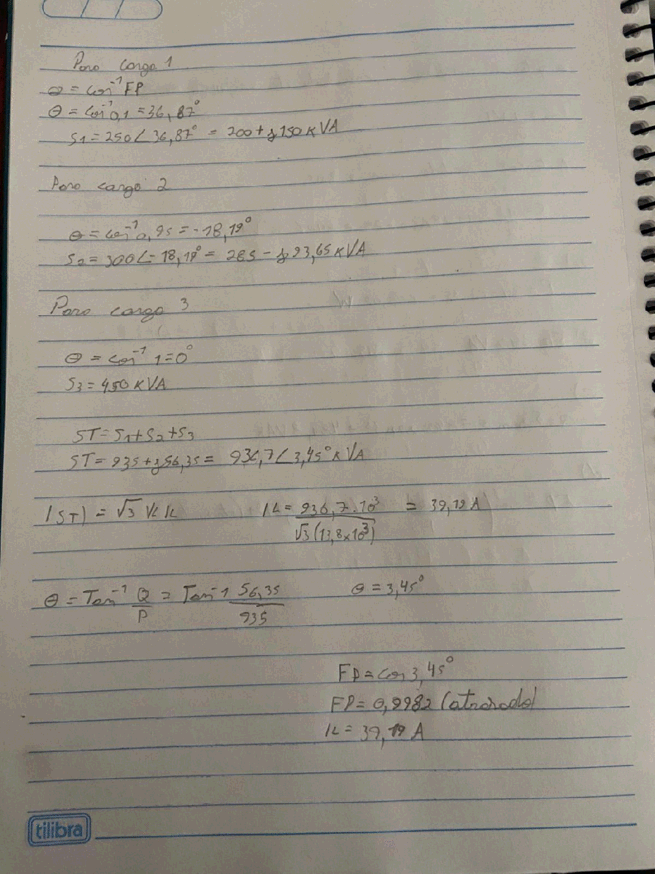 Para carga 1
θ = cos⁻¹ FP
θ = cos⁻¹ 0,1 = 36,87°
S1 = 250∠36,87° = 200 + j150 KVA
Para carga 2
θ = cos⁻¹ 0,95 = -18,19°
S2 = 300∠-18,19° = 285 - j93,65 KVA
Para carga 3
θ = cos⁻¹ 1 = 0°
S3 = 450 KVA
ST = S1 + S2 + S3
ST = 935 + j56,35 = 936,7∠3,45° KVA
|ST| = √3 VL IL IL = 936,7.10³ / √3 (13,8x10³) = 39,19 A
θ = Tan⁻¹ Q/P = Tan⁻¹ 56,35/935 θ = 3,45°
FP = cos 3,45°
FP = 0,9982 (atrasado)
IL = 39,19 A
tilibra